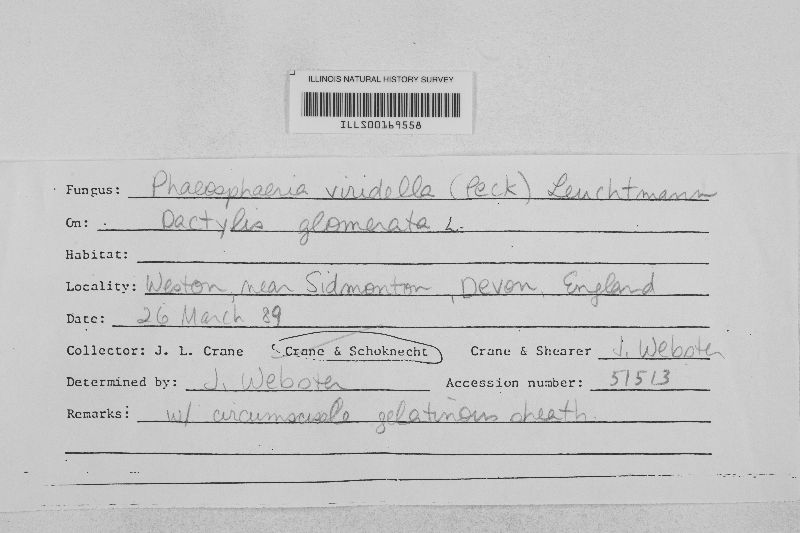 ILLINOIS NATURAL HISTORY SURVEY
ILLS00169558
Fungus: Phaeosphaeria viridella (Peck) Leuchtmann
On: Dactylis glomerata L.
Habitat:
Locality: Weston, near Sidmonton, Devon, England
Date: 26 March 89
Collector: J. L. Crane Crane & Schoknecht Crane & Shearer J. Webster
Determined by: J. Webster Accession number: 51513
Remarks: w/ gelatinous sheath.